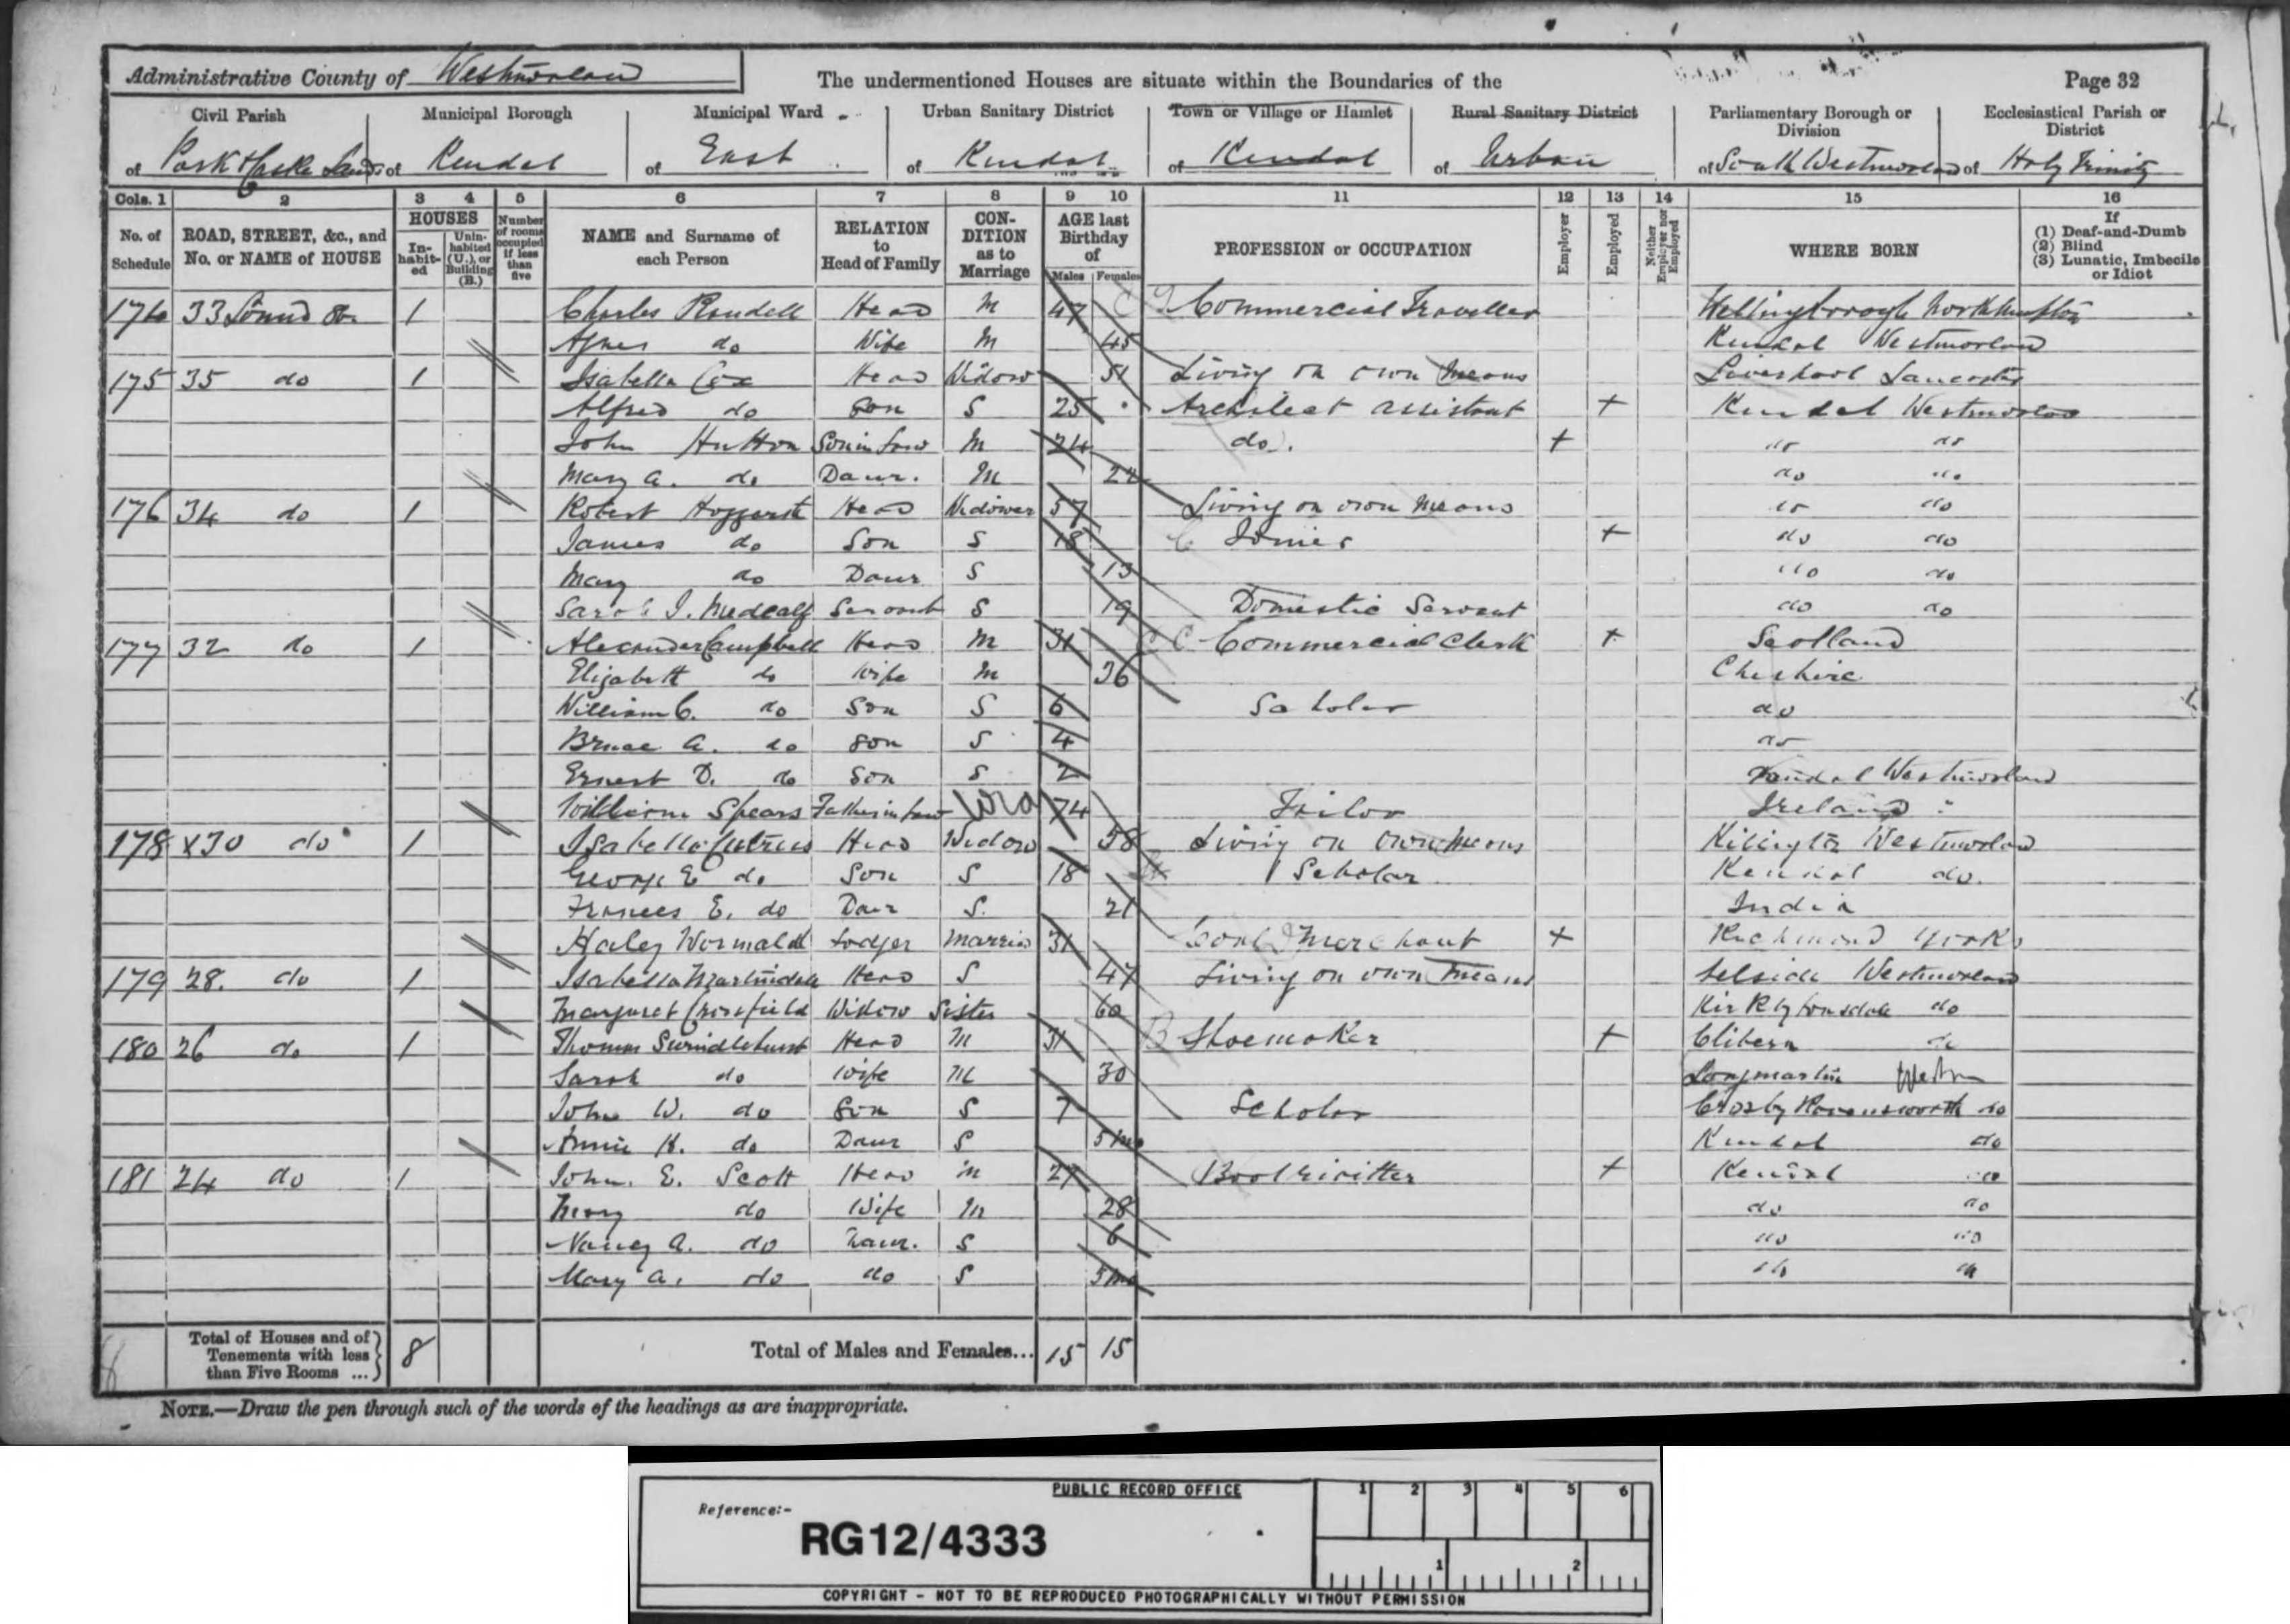 Administrative County of Westmorland
The undermentioned Houses are situate within the Boundaries of the
Page 32
Civil Parish Municipal Borough Municipal Ward Urban Sanitary District Town or Village or Hamlet Rural Sanitary District Parliamentary Borough or Division Ecclesiastical Parish or District
of Park & Castle Lands of Kendal of East of Kendal of Kendal of Urban of South Westmorland of Holy Trinity
Cols. 1 2 3 4 5 6 7 8 9 10 11 12 13 14 15 16
No. of Schedule ROAD, STREET, &c., and No. or NAME of HOUSE HOUSES Inhabited Uninhabited (U.), or Building (B.) Number of rooms occupied if less than five NAME and Surname of each Person RELATION to Head of Family CONDITION as to Marriage AGE last Birthday of Males Females PROFESSION or OCCUPATION Employer Employed Neither Employer nor Employed WHERE BORN If (1) Deaf-and-Dumb (2) Blind (3) Lunatic, Imbecile or Idiot
174 33 1 Charles Head M 47 Commercial Traveller Wellingborough
Agnes do Wife M 45 Kendal Westmorland
175 35 do 1 Isabella Cox Head Widow 51 Living on own Means Liverpool Lancaster
Alfred do Son S 25 Architect assistant + Kendal Westmorland
John Hutton Son in law M 24 do. + do do
Mary A. do Daur. M 22 do do
176 34 do 1 Robert Hoggarth Head Widower 57 Living on own Means do do
James do Son S 18 Joiner + do do
Mary do Daur S 13 do do
Sarah J. Medcalf Servant S 19 Domestic Servant do do
177 32 do 1 Alexander Campbell Head M 31 C Commercial Clerk + Scotland
Elizabeth do Wife M 36 Cheshire
William C. do Son S 6 Scholar do
Bruce A. do Son S 4 do
Ernest D. do Son S 2 Kendal Westmorland
William Spears Father in law 74 Ireland
178 x30 do 1 Isabella Head Widow 58 Living on own Means Killington Westmorland
George E do Son S 18 Scholar Kendal do.
Frances E. do Daur S. 21 India
Haley Wormald Lodger Married 31 Coal Merchant + Richmond Yorks
179 28. do 1 Isabella Martindale Head S 47 Living on own means Selside Westmorland
Margaret Crossfield Widow Sister 60 Kirkby Lonsdale do
180 26 do 1 Thomas Swindlehurst Head M 31 B Shoemaker + Clibern do
Sarah do Wife M 30 Longmarton Westm
John W. do Son S 7 Scholar Crosby Ravensworth do
Annie K. do Daur S 5 mo Kendal do
181 24 do 1 John. E. Scott Head M 27 Boot rivitter + Kendal do
Mary do Wife M 28 do do
Nancy A. do Daur. S 6 do do
Mary A. do do S 5 mo do do
Total of Houses and of Tenements with less than Five Rooms ... 8 Total of Males and Females... 15 15
NOTE.—Draw the pen through such of the words of the headings as are inappropriate.
PUBLIC RECORD OFFICE
1 2 3 4 5 6
Reference:-
RG12/4333
1 2
COPYRIGHT - NOT TO BE REPRODUCED PHOTOGRAPHICALLY WITHOUT PERMISSION